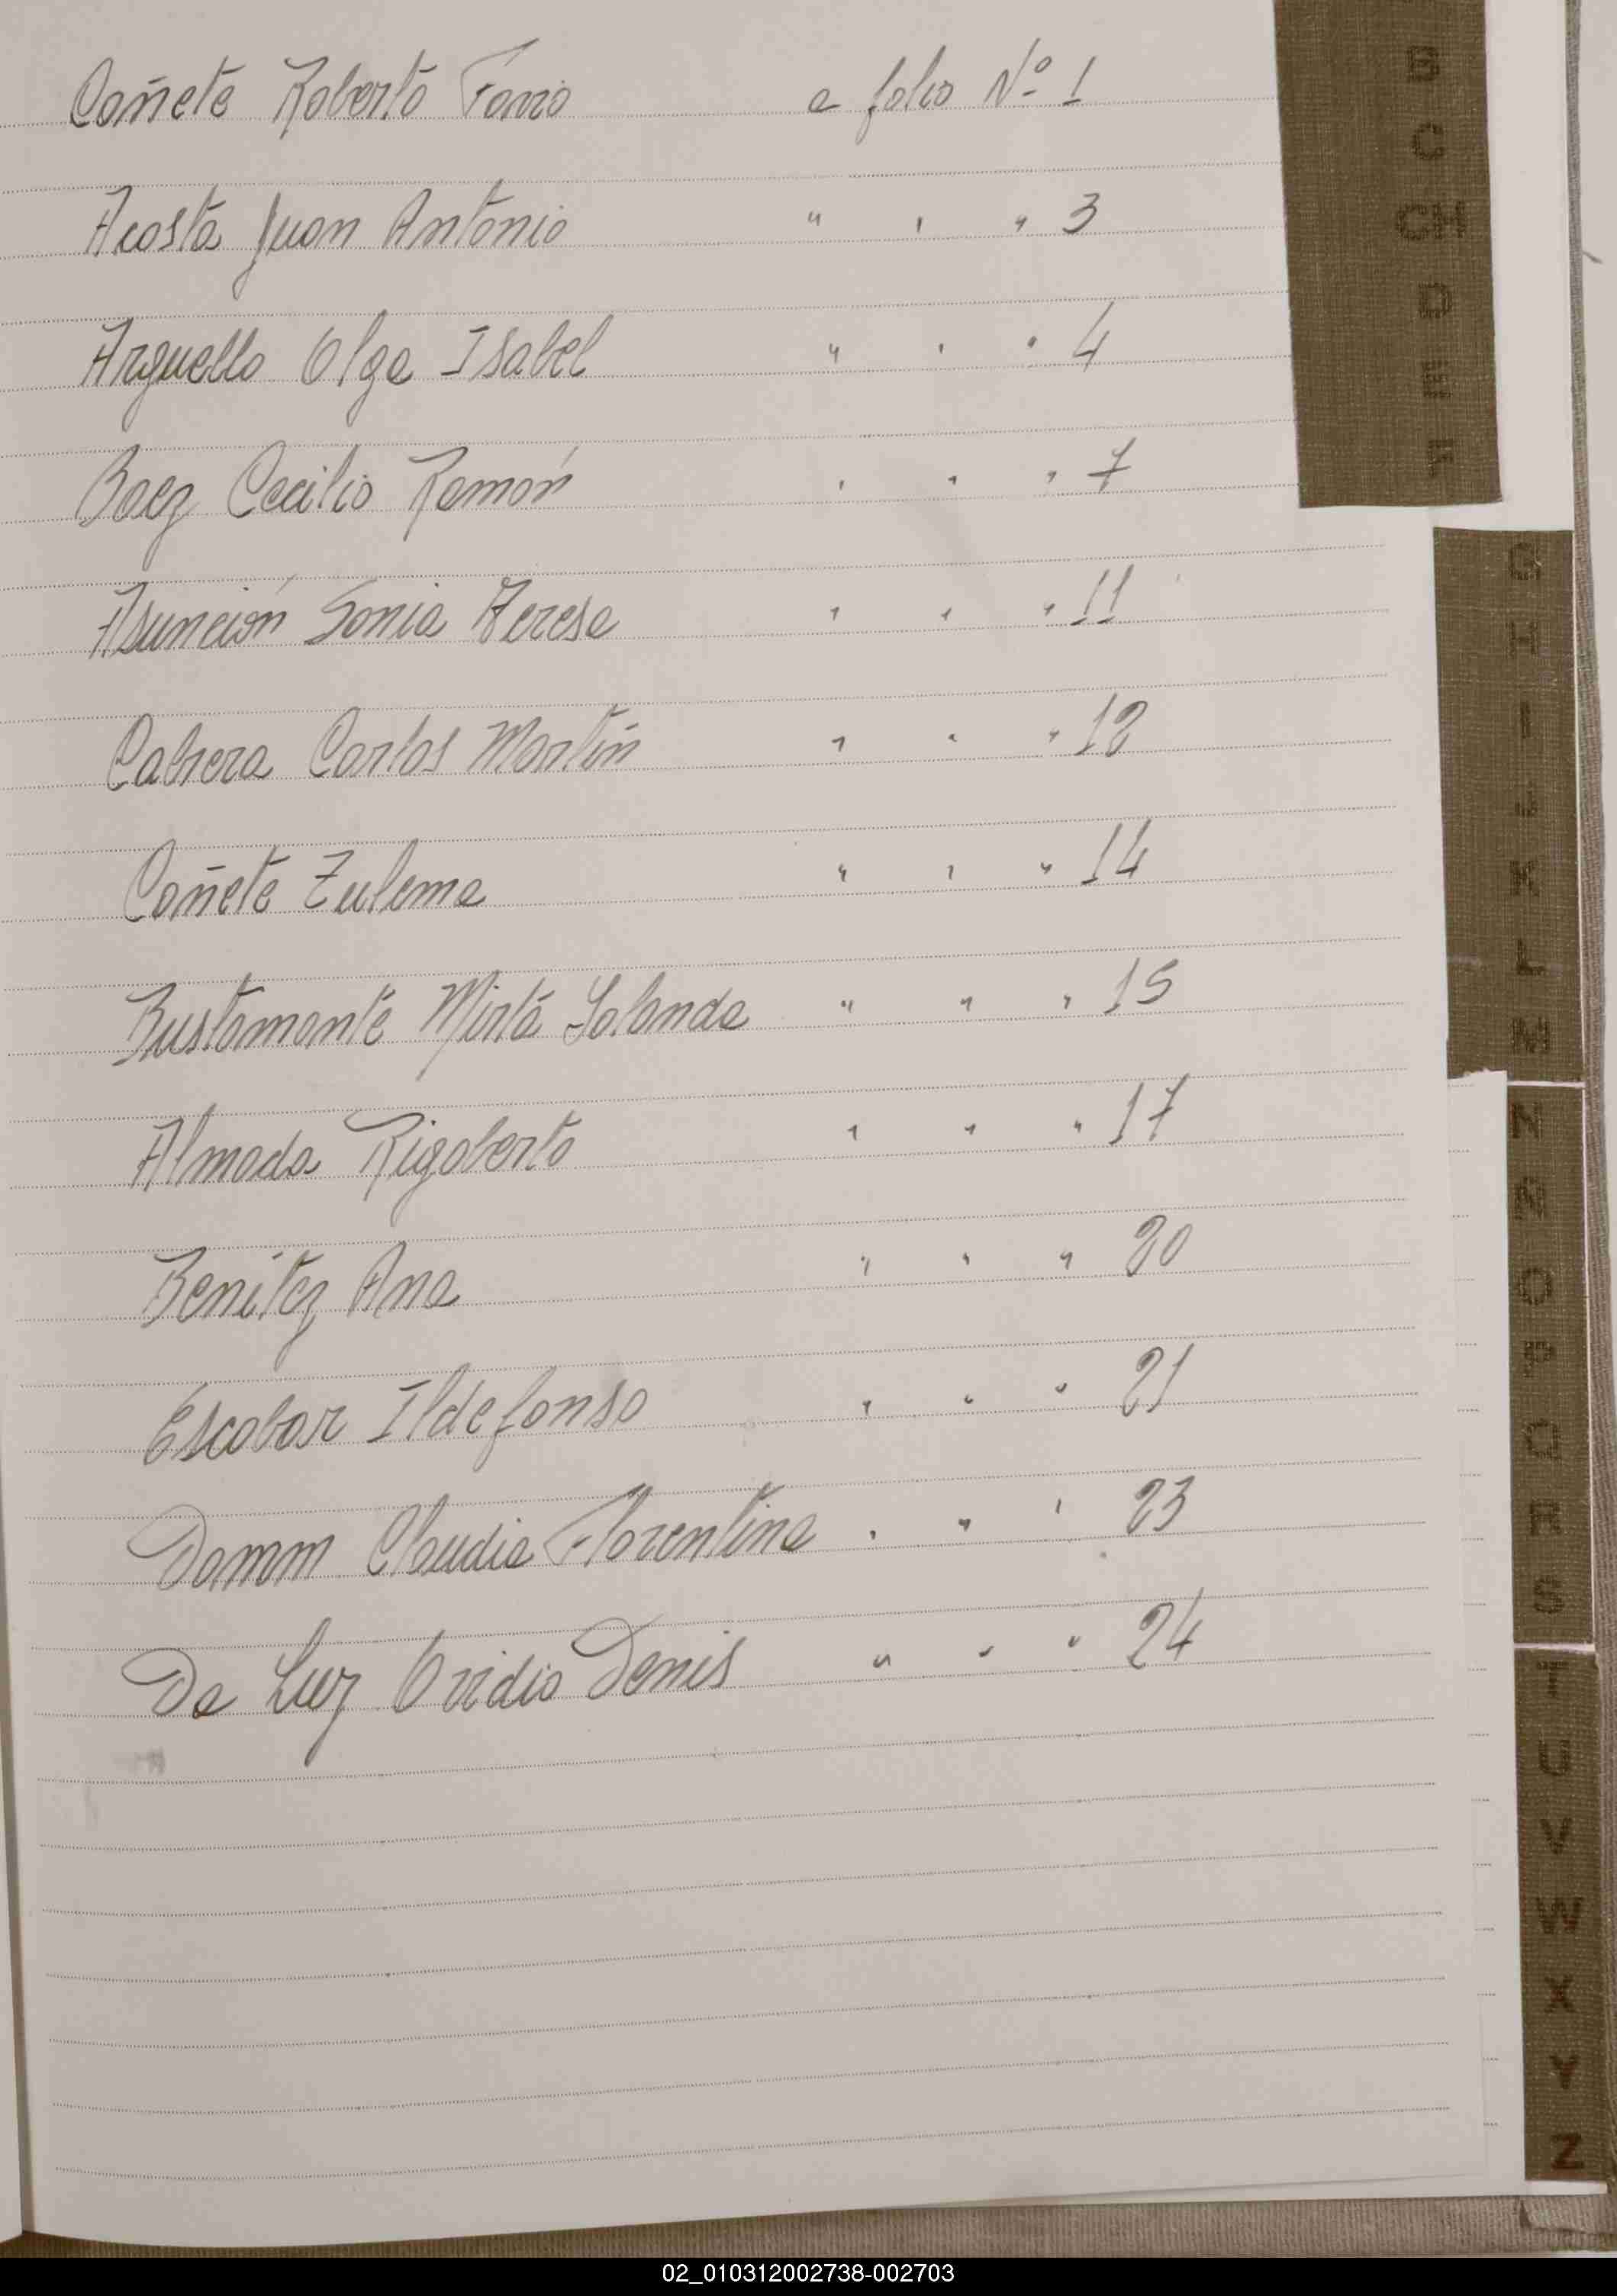 Cañete Roberto Fanio a folio Nº 1
Acosta Juan Antonio " " " 3
Arguello Olga Isabel " " " 4
Baez Cecilio Ramón " " " 7
Asunción Sonia Teresa " " " 11
Cabrera Carlos Martín " " " 12
Cañete Zulema " " " 14
Bustamante Mirta Yolanda " " " 15
Almada Rigoberto " " " 17
Benítez Ana " " " 20
Escobar Ildefonso " " " 21
Damm Claudia Florentina " " " 23
Da Luz Ovidio Denis " " " 24
B
C
CH
D
E
F
G
H
I
J
K
L
M
N
Ñ
O
P
Q
R
S
T
U
V
W
X
Y
Z
02_010312002738-002703